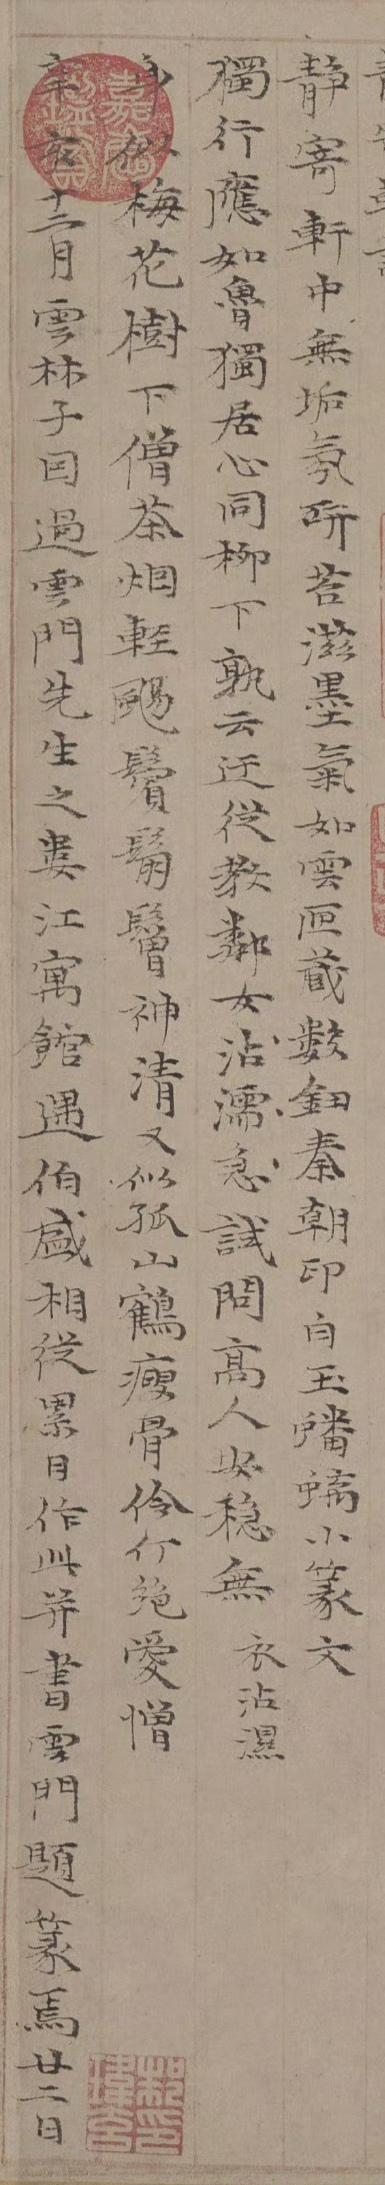 靜寄軒中無垢氛研苔滋墨氣如雲匣藏數鈕秦朝印白玉蟠螭小篆文
獨行應如魯獨居心同柳下孰云迂從教鄰女沾濡急試問高人安穩無 衣沾濕
身似梅花樹下僧茶烟輕颺鬢鬅鬙神清又似孤山鶴瘦骨伶仃絶愛憎
辛亥十二月雲林子因過雲門先生之婁江寓館遇伯盛相從累日作此并書雲門題篆焉廿二日